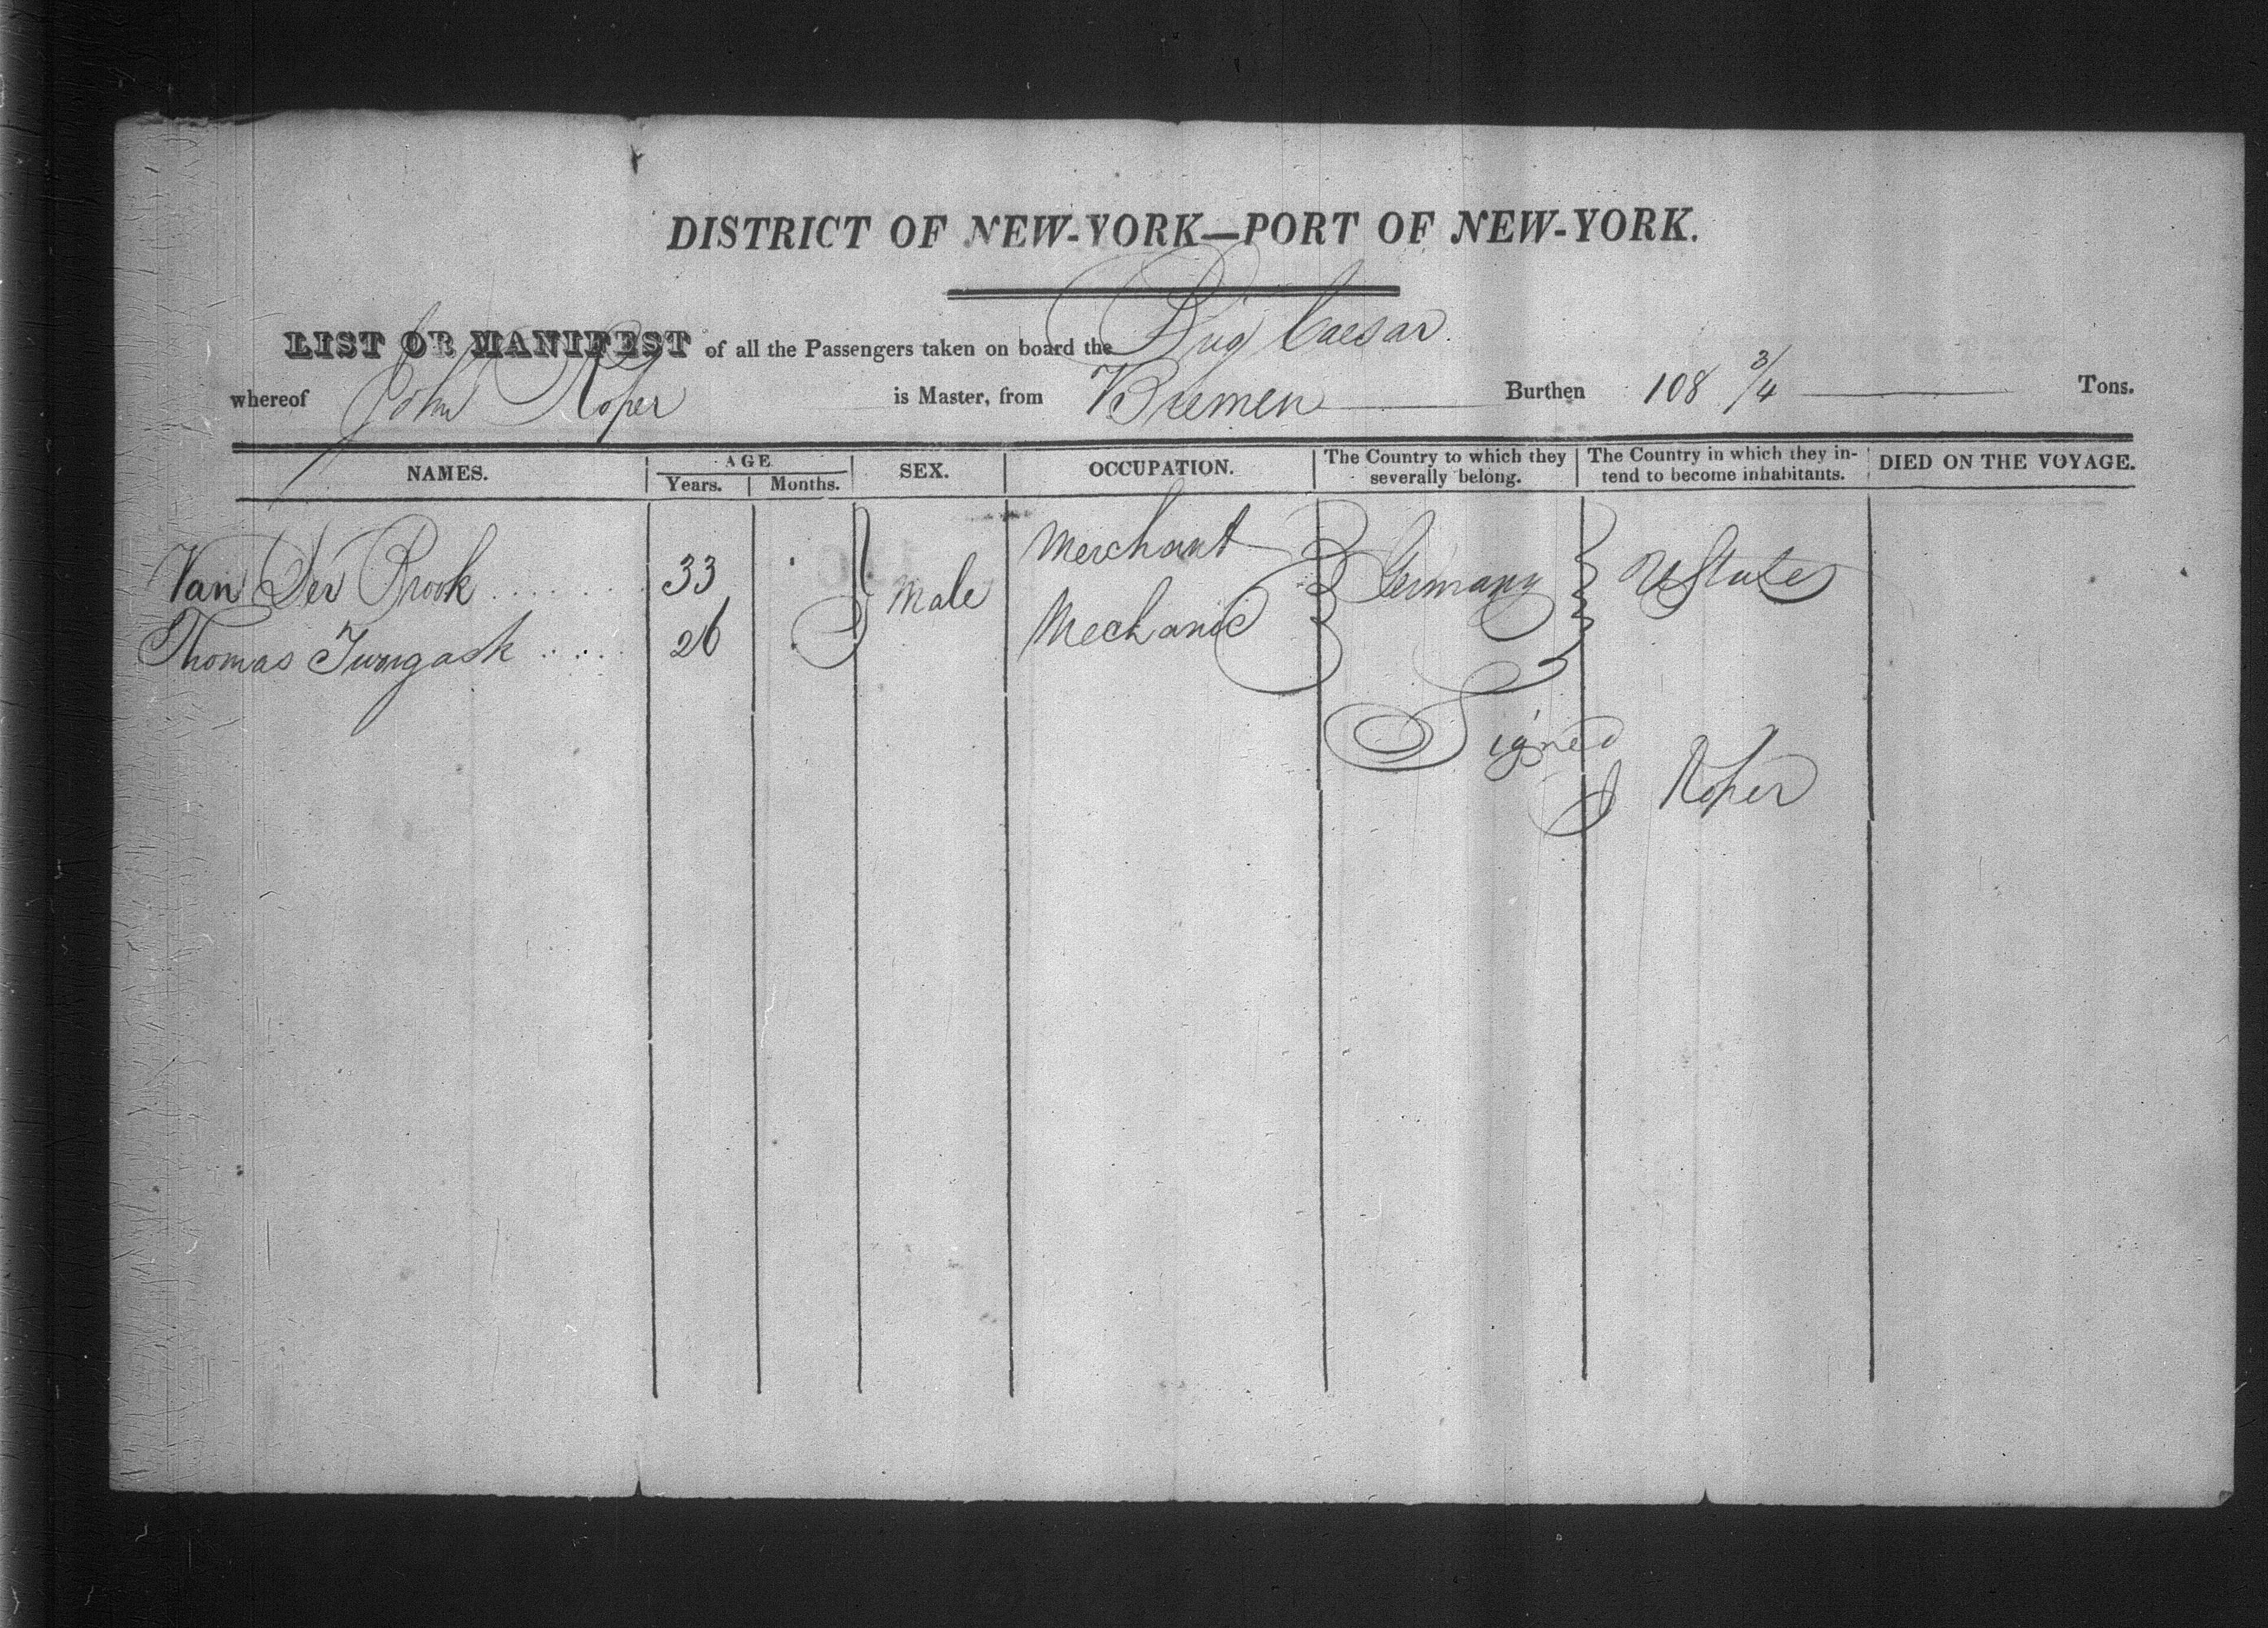 DISTRICT OF NEW-YORK—PORT OF NEW-YORK.
LIST OR MANIFEST of all the Passengers taken on board the Brig Caesar.
whereof John Roper is Master, from Bremen Burthen 108 3/4 Tons.
NAMES. AGE Years. Months. SEX. OCCUPATION. The Country to which they severally belong. The Country in which they intend to become inhabitants. DIED ON THE VOYAGE.
Van Der Brook 33 Male Merchant Germany UStates
Thomas 26 Mechanic
Signed
J Roper